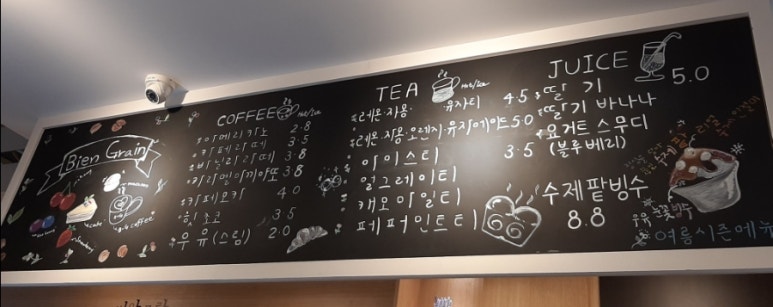 Bien Grain
cake
COFFEE Hot/Ice
아메리카노 2.8
카페라떼 3.8
바닐라라떼 3.8
카라멜마끼아또 3.8
카페모카 4.0
핫초코 3.5
우유(스팀) 2.0
TEA Hot/Ice
레몬·자몽·유자티 4.5
레몬·자몽·오렌지·유자에이드 5.0
아이스티 3.5
얼그레이티
캐모마일티
페퍼민트티
JUICE 5.0
딸기
딸기 바나나
요거트 스무디
(블루베리)
수제팥빙수
8.8
우유 눈꽃빙수
여름시즌메뉴